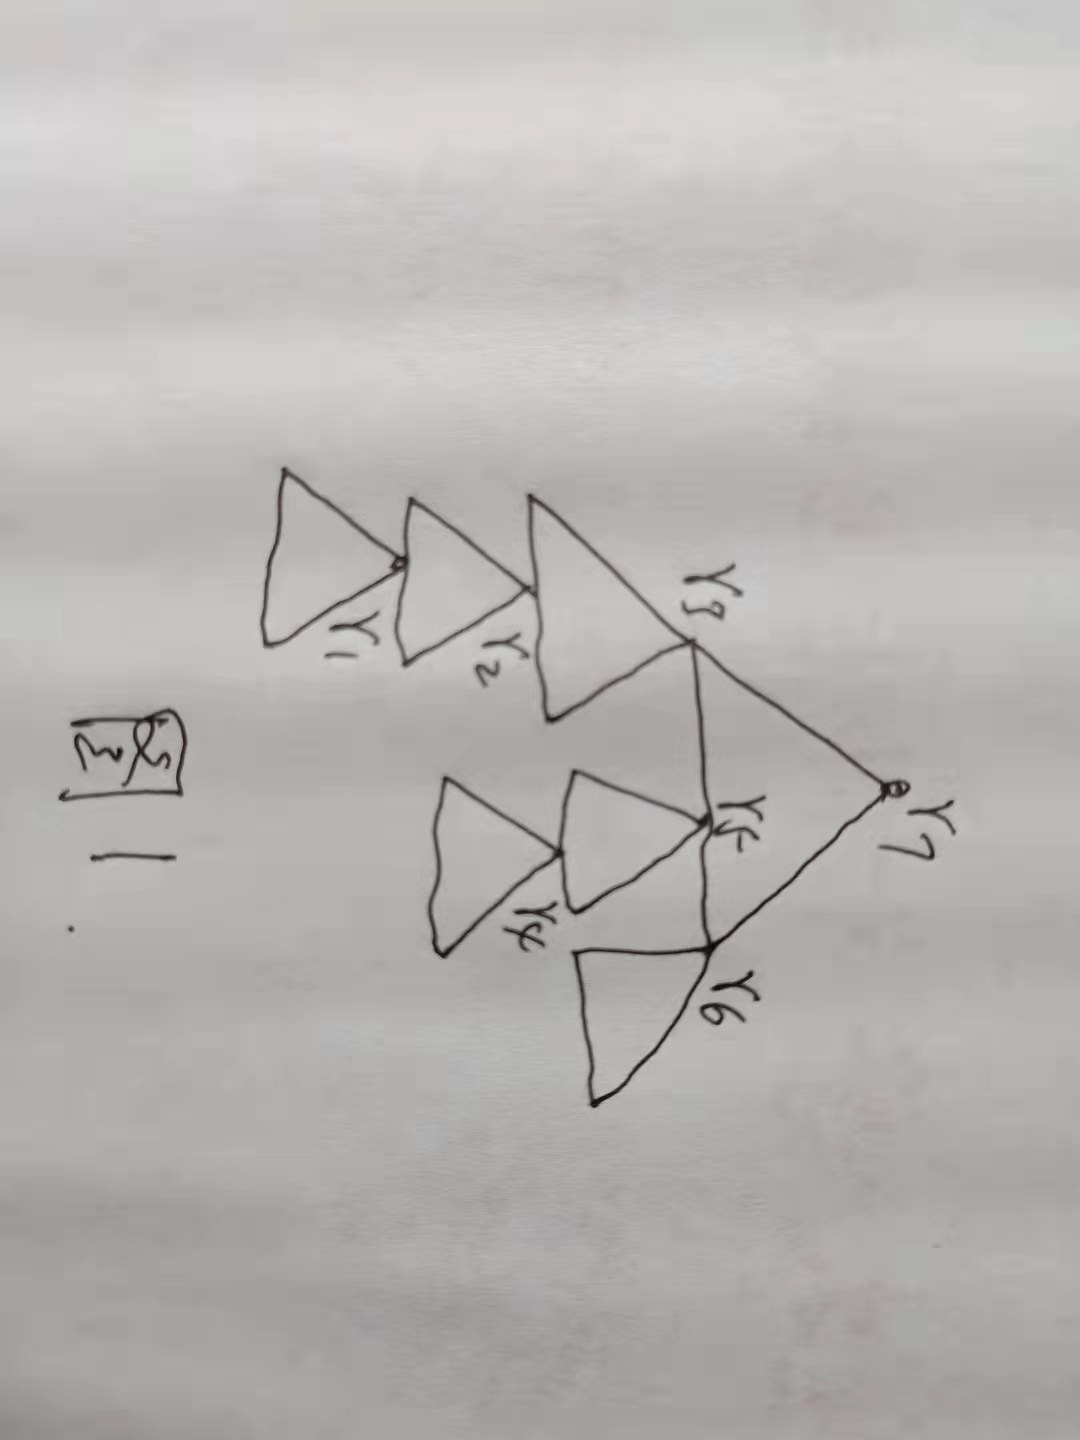 r7
r3 r5 r6
r4
r2
r1
图 1.